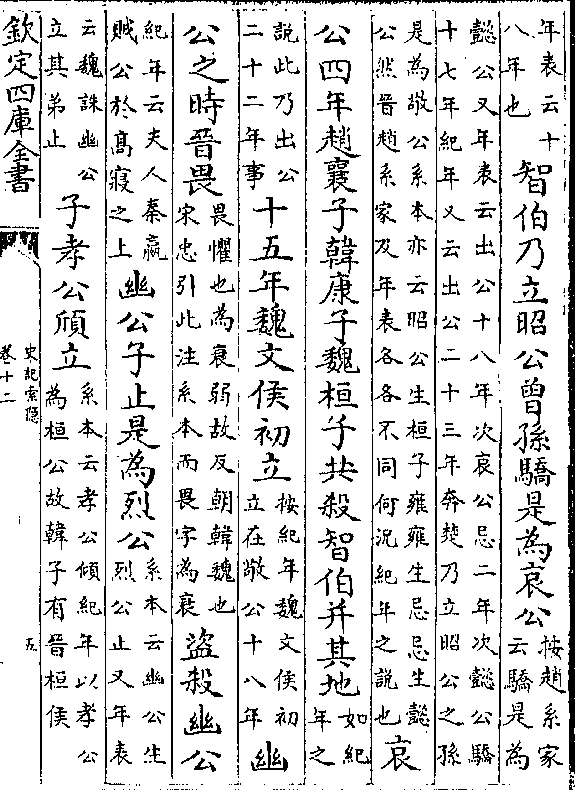 年表云十
八年也
智伯乃立昭公曾孫驕是為哀公
按趙系家
云驕是為
懿公又年表云出公十八年次哀公忌二年次懿公驕
十七年紀年又云出公二十三年奔楚乃立昭公之孫
是為敬公系本亦云昭公生桓子雍雍生忌忌生懿
公然晉趙系家及年表各各不同何況紀年之說也
哀
公四年趙襄子韓康子魏桓子共殺智伯并其地
如紀
年之
說此乃出公
二十二年事
十五年魏文侯初立
按紀年魏文侯初
立在敬公十八年
幽
公之時晉畏
畏懼也為衰弱故反朝韓魏也
宋忠引此注系本而畏字為衰
盜殺幽公
紀年云夫人秦嬴
賊公於高寢之上
幽公子止是為烈公
系本云幽公生
烈公止又年表
云魏誅幽公
立其弟止
子孝公頎立
系本云孝公傾紀年以孝公
為桓公故韓子有晉桓侯
欽定四庫全書
史記索隱
卷十二
五